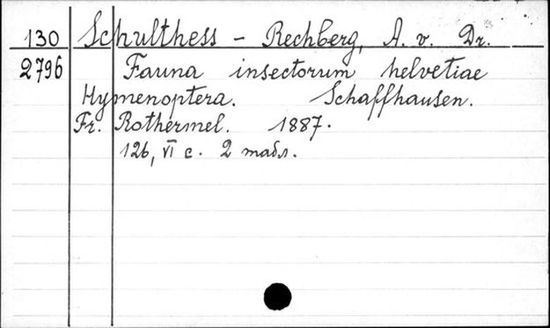 130 Schulthess - Rechberg, A. v. Dr.
2796 Fauna insectorum helvetiae
Hymenoptera. Schaffhausen.
Fr. Rothermel. 1887.
126, VI c. 2 табл.